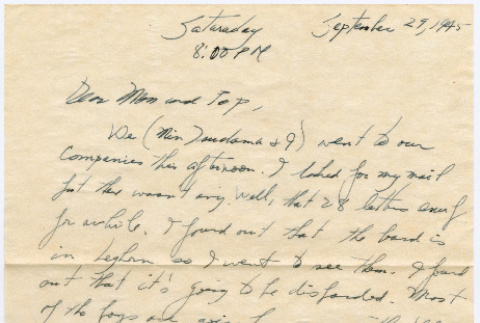 Saturaday September 29, 1945
8:00 PM
Dear Mom and Pop,
We (Min Tsudama & I) went to our
Companies this afternoon. I looked for my mail
but there wasn't any. Well, that 28 letters enuf
for awhile. I found out that the band is
in Leghorn so I went to see them. I found
out that it's going to be disbanded. Most
of the boys are